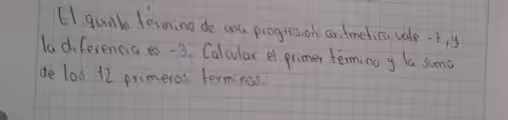 El quinto término de una progresión aritmetica vale -7, y
la diferencia es -3. Calcular el primer término y la suma
de los 12 primeros terminos.